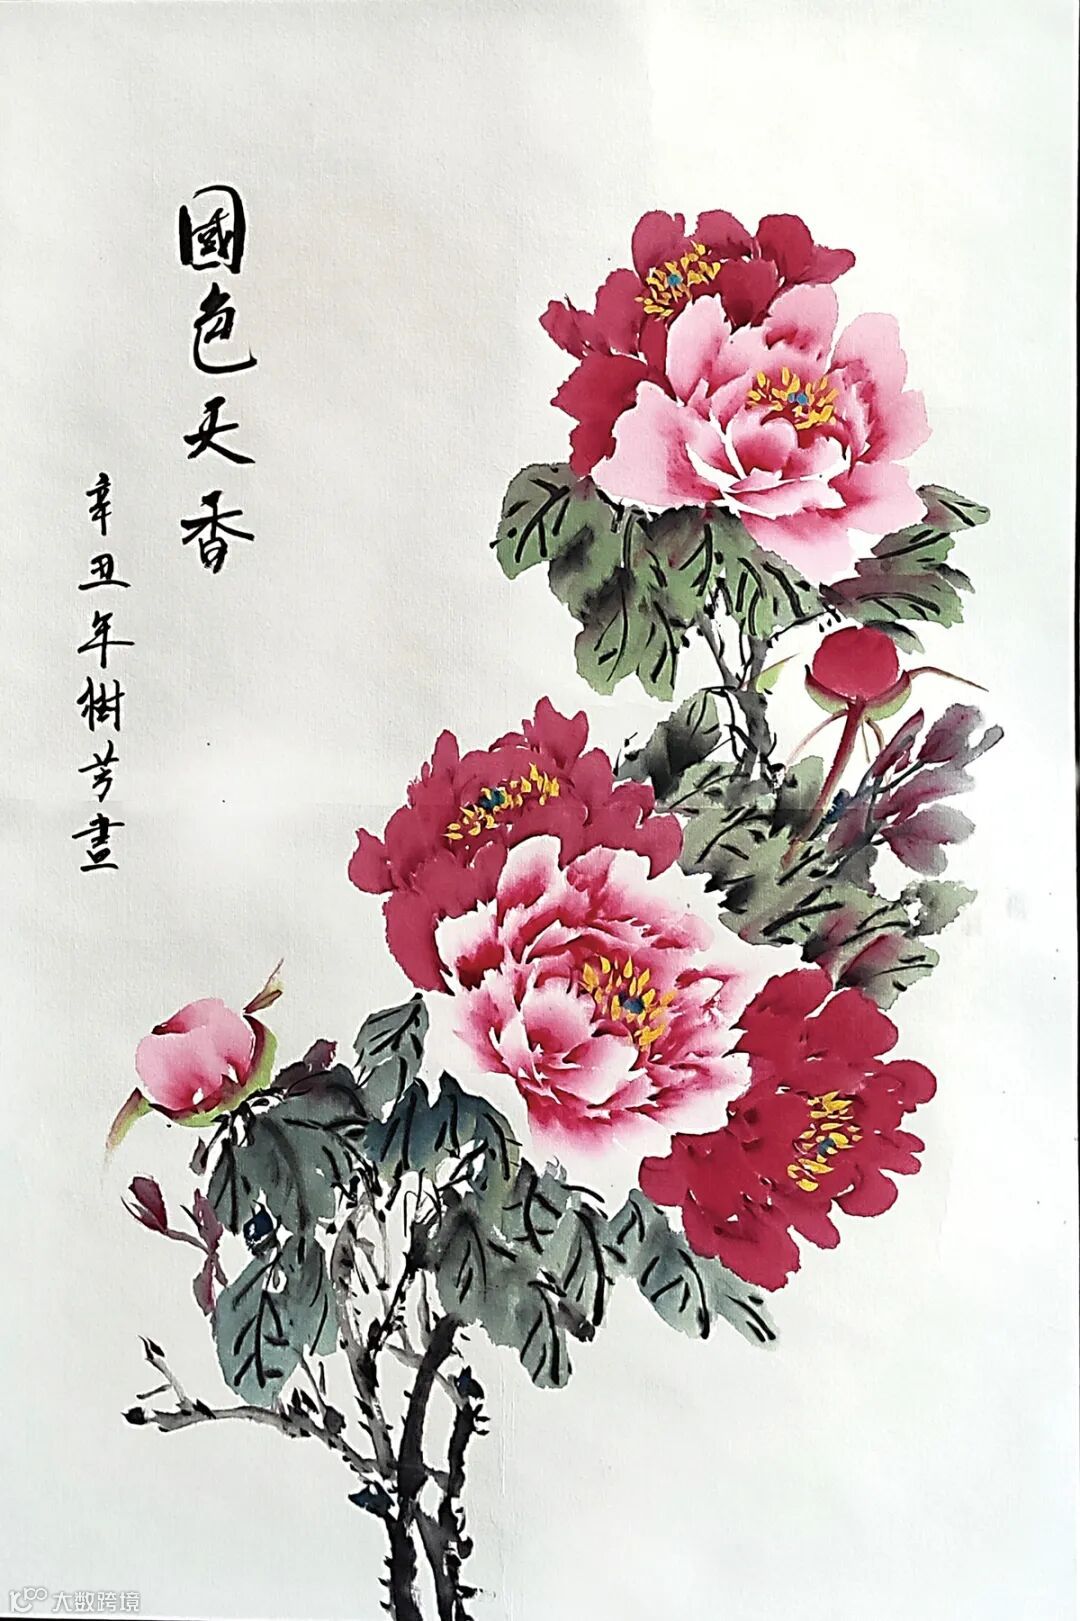 國色天香
辛丑年樹芳畫
大数跨境